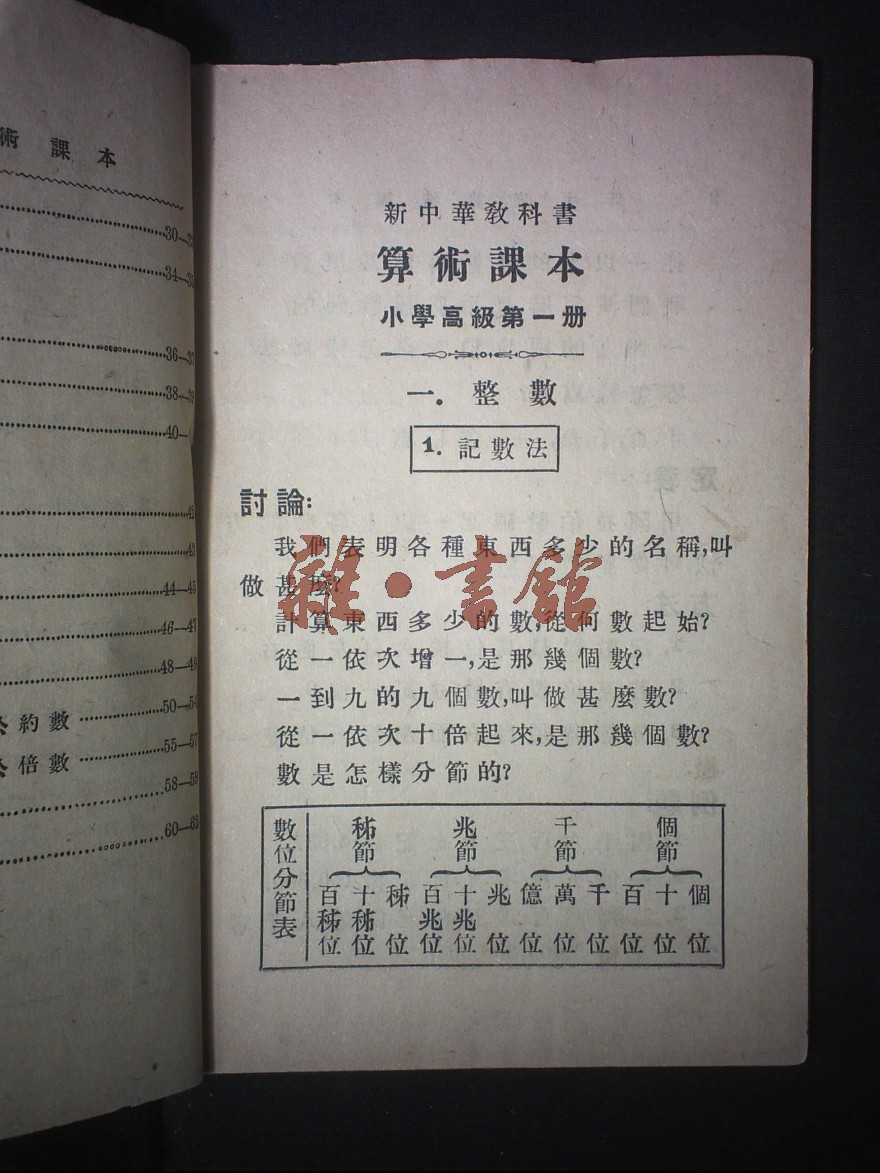 術課本
30—3
34—3
36—37
38—39
40—
42
43
44—45
46—47
48—49
公約數 50—54
公倍數 55—57
58—59
60—62
新中華敎科書
算術課本
小學高級第一册
一. 整數
1. 記數法
討論:
我們表明各種東西多少的名稱,叫
做甚麼?
計算東西多少的數,從何數起始?
從一依次增一,是那幾個數?
一到九的九個數,叫做甚麼數?
從一依次十倍起來,是那幾個數?
數是怎樣分節的?
數位分節表
秭節 兆節 千節 個節
百秭位 十秭位 秭位 百兆位 十兆位 兆位 億位 萬位 千位 百位 十位 個位
雜·書館